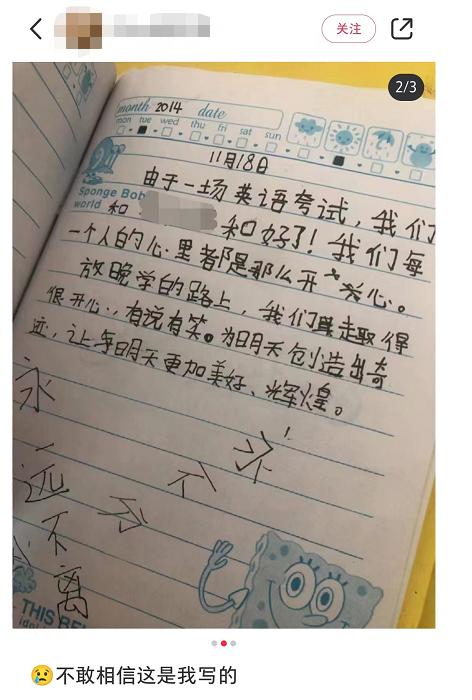 关注
2/3
month 2014 date
mon tue wed thu fri sat sun
11月18日
Sponge Bob
world
由于一场英语考试，我们
和 和好了！我们每
一个人的心里都是那么开心。
放晚学的路上，我们
很开心，有说有笑。为明天创造出奇
迹，让每明天更加美好、辉煌。
永远不分离
永不分
THIS BE
😢不敢相信这是我写的